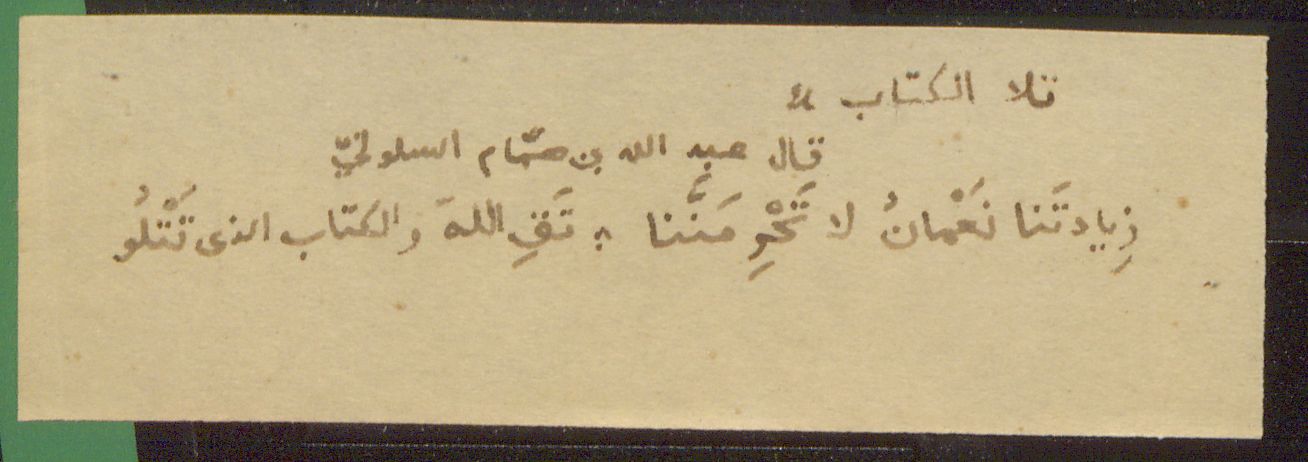 تلا الكتاب //
قال عبد الله بن همّام السلوليّ
زِيادتَنا نَعْمانُ لا تَحْرِمَنَّنا ؛ تَقِ اللهَ والكتاب الذى تَتْلُو